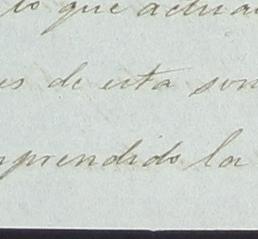 lo que actua
es de esta son
prendido la